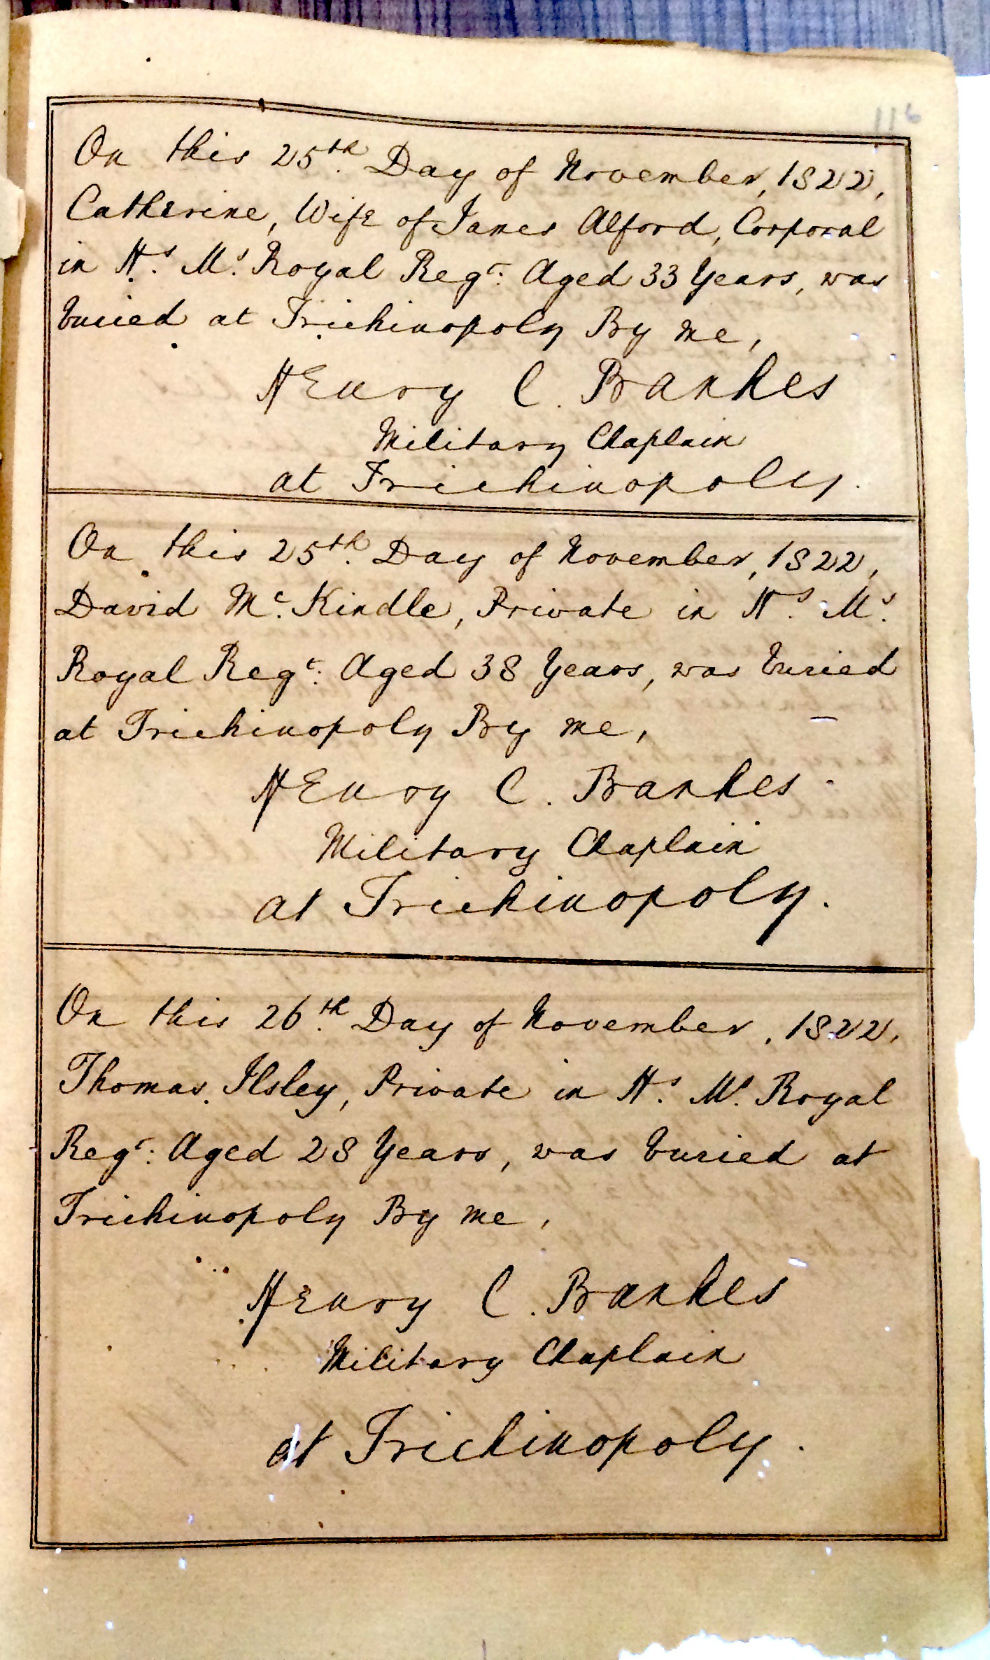 116
On this 25th. Day of November, 1822,
Catherine, Wife of James Alford, Corporal
in H.s M.s Royal Regt: Aged 33 Years, was
buried at Trichinopoly By me,
HEnry C. Bankes
Military Chaplain
at Trichinopoly.
On this 25th. Day of November, 1822,
David Mc.Kindle, Private in H.s M.s
Royal Regt: Aged 38 Years, was buried
at Trichinopoly By me,
HEnry C. Bankes.
Military Chaplain
at Trichinopoly.
On this 26.th Day of November, 1822,
Thomas Ilsley, Private in H.s M.s Royal
Regt: Aged 28 Years, was buried at
Trichinopoly By me,
HEnry C. Bankes
Military Chaplain
at Trichinopoly.